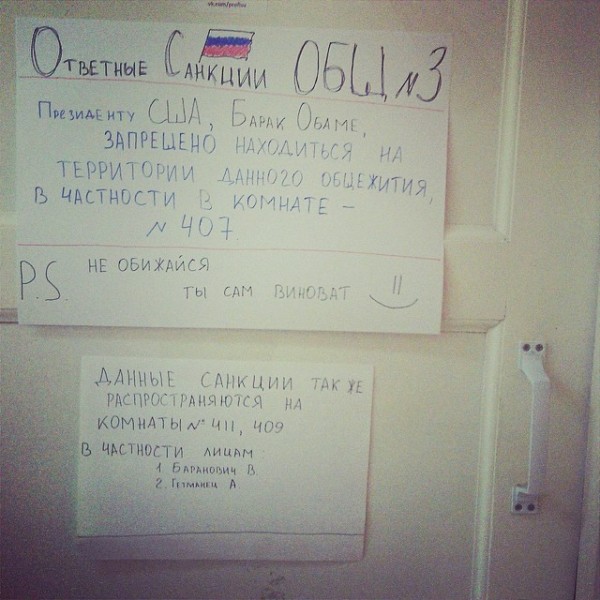 vk.com/profise
Ответные Санкции ОБЩ №3
Президенту США, Барак Обаме,
ЗАПРЕШЕНО НАХОДИТЬСЯ НА
ТЕРРИТОРИИ ДАННОГО ОБЩЕЖИТИЯ,
В ЧАСТНОСТИ В КОМНАТЕ –
№ 407.
P.S. НЕ ОБИЖАЙСЯ
ТЫ САМ ВИНОВАТ
ДАННЫЕ САНКЦИИ ТАК ЖЕ
РАСПРОСТРАНЯЮТСЯ НА
КОМНАТЫ № 411, 409
В ЧАСТНОСТИ ЛИЦАМ
1 БАРАНОВИЧ В.
2. ГЕТМАНЕЦ А